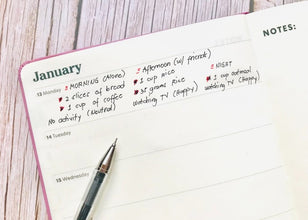 January
NOTES:
13 Monday
MORNING (Alone)
2 slices of bread
1 cup of coffee
No activity (Neutral)
Afternoon (w/ friends)
1 cup rice
35 grams rice
Watching TV (Happy)
NIGHT
1 cup oatmeal
Watching TV (Happy)
14 Tuesday
15 Wednesday